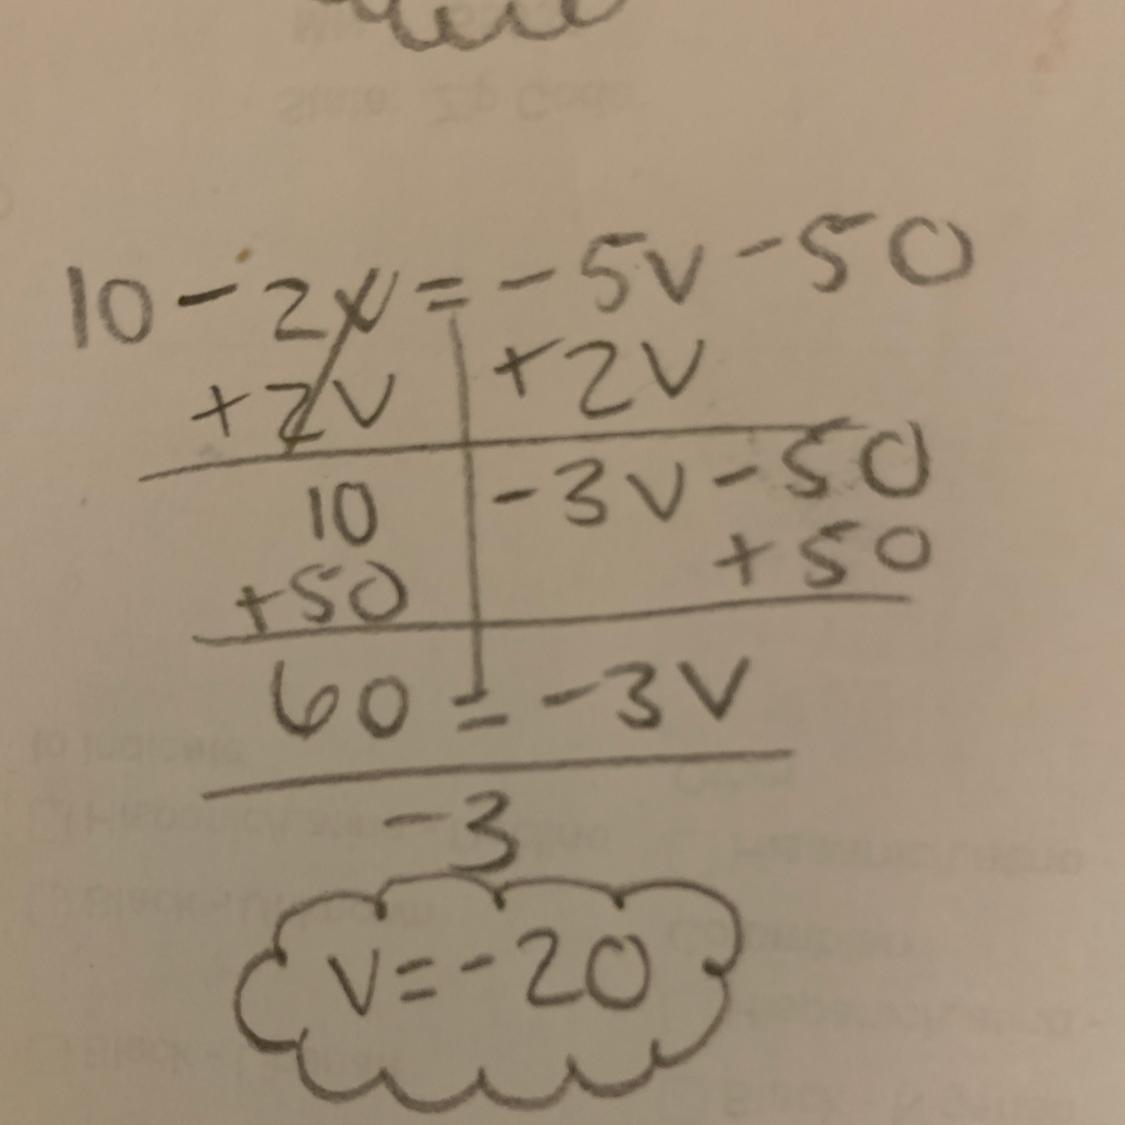 10 - 2v = -5v - 50
+2v +2v
10 -3v - 50
+50 +50
60 = -3v
-3
v = -20